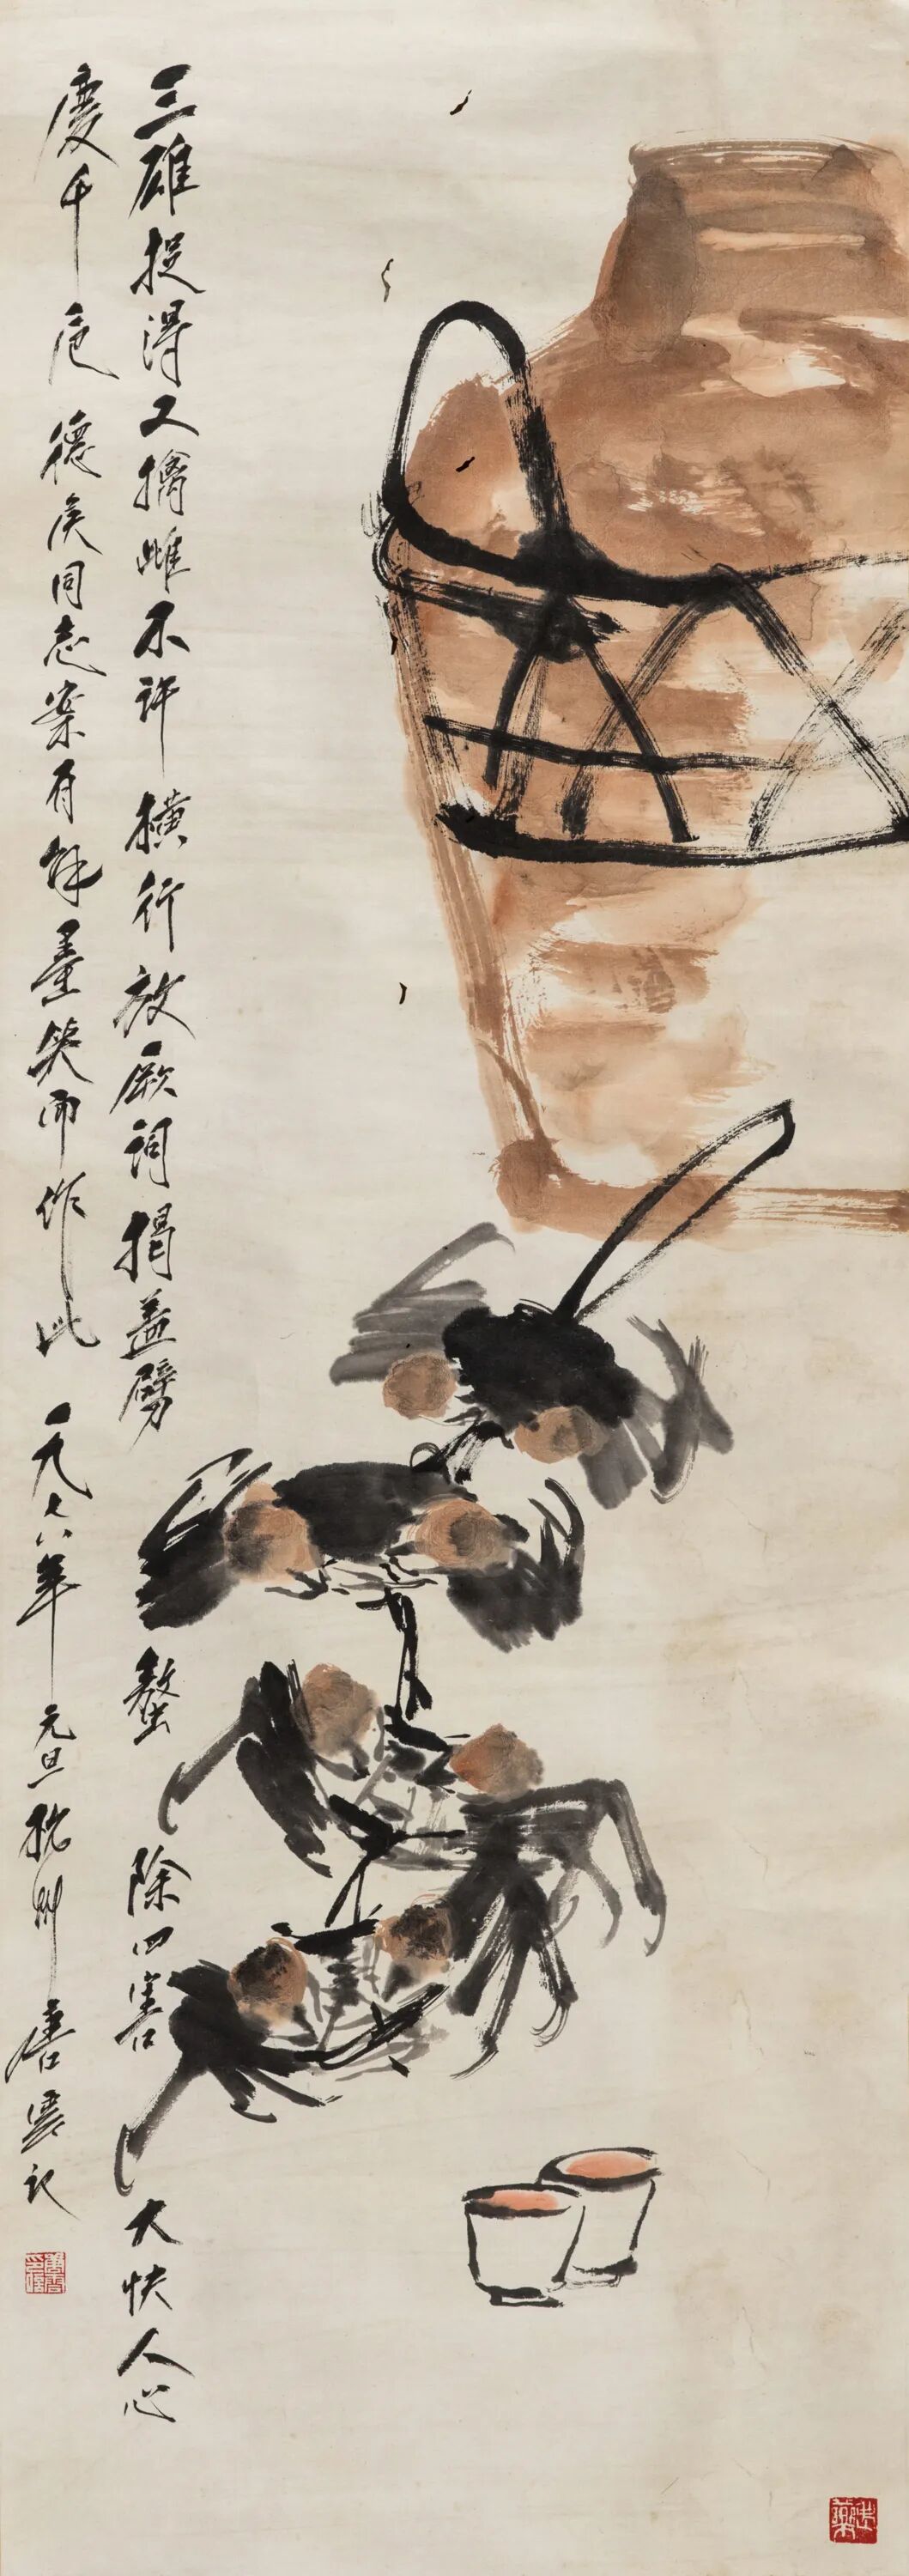 三雄捉得又擒雌不许横行放厥词揭盖劈螯除四害大快人心
庆千卮德侯同志案有馀墨笑而作此一九七八年元旦杭州唐云记